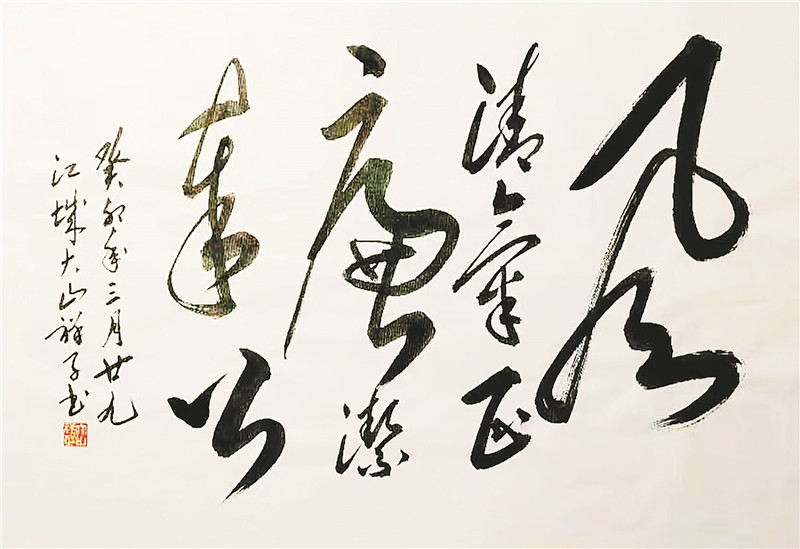 風
清氣正
廉潔
奉公
癸卯年三月廿九
江城大山祥子书